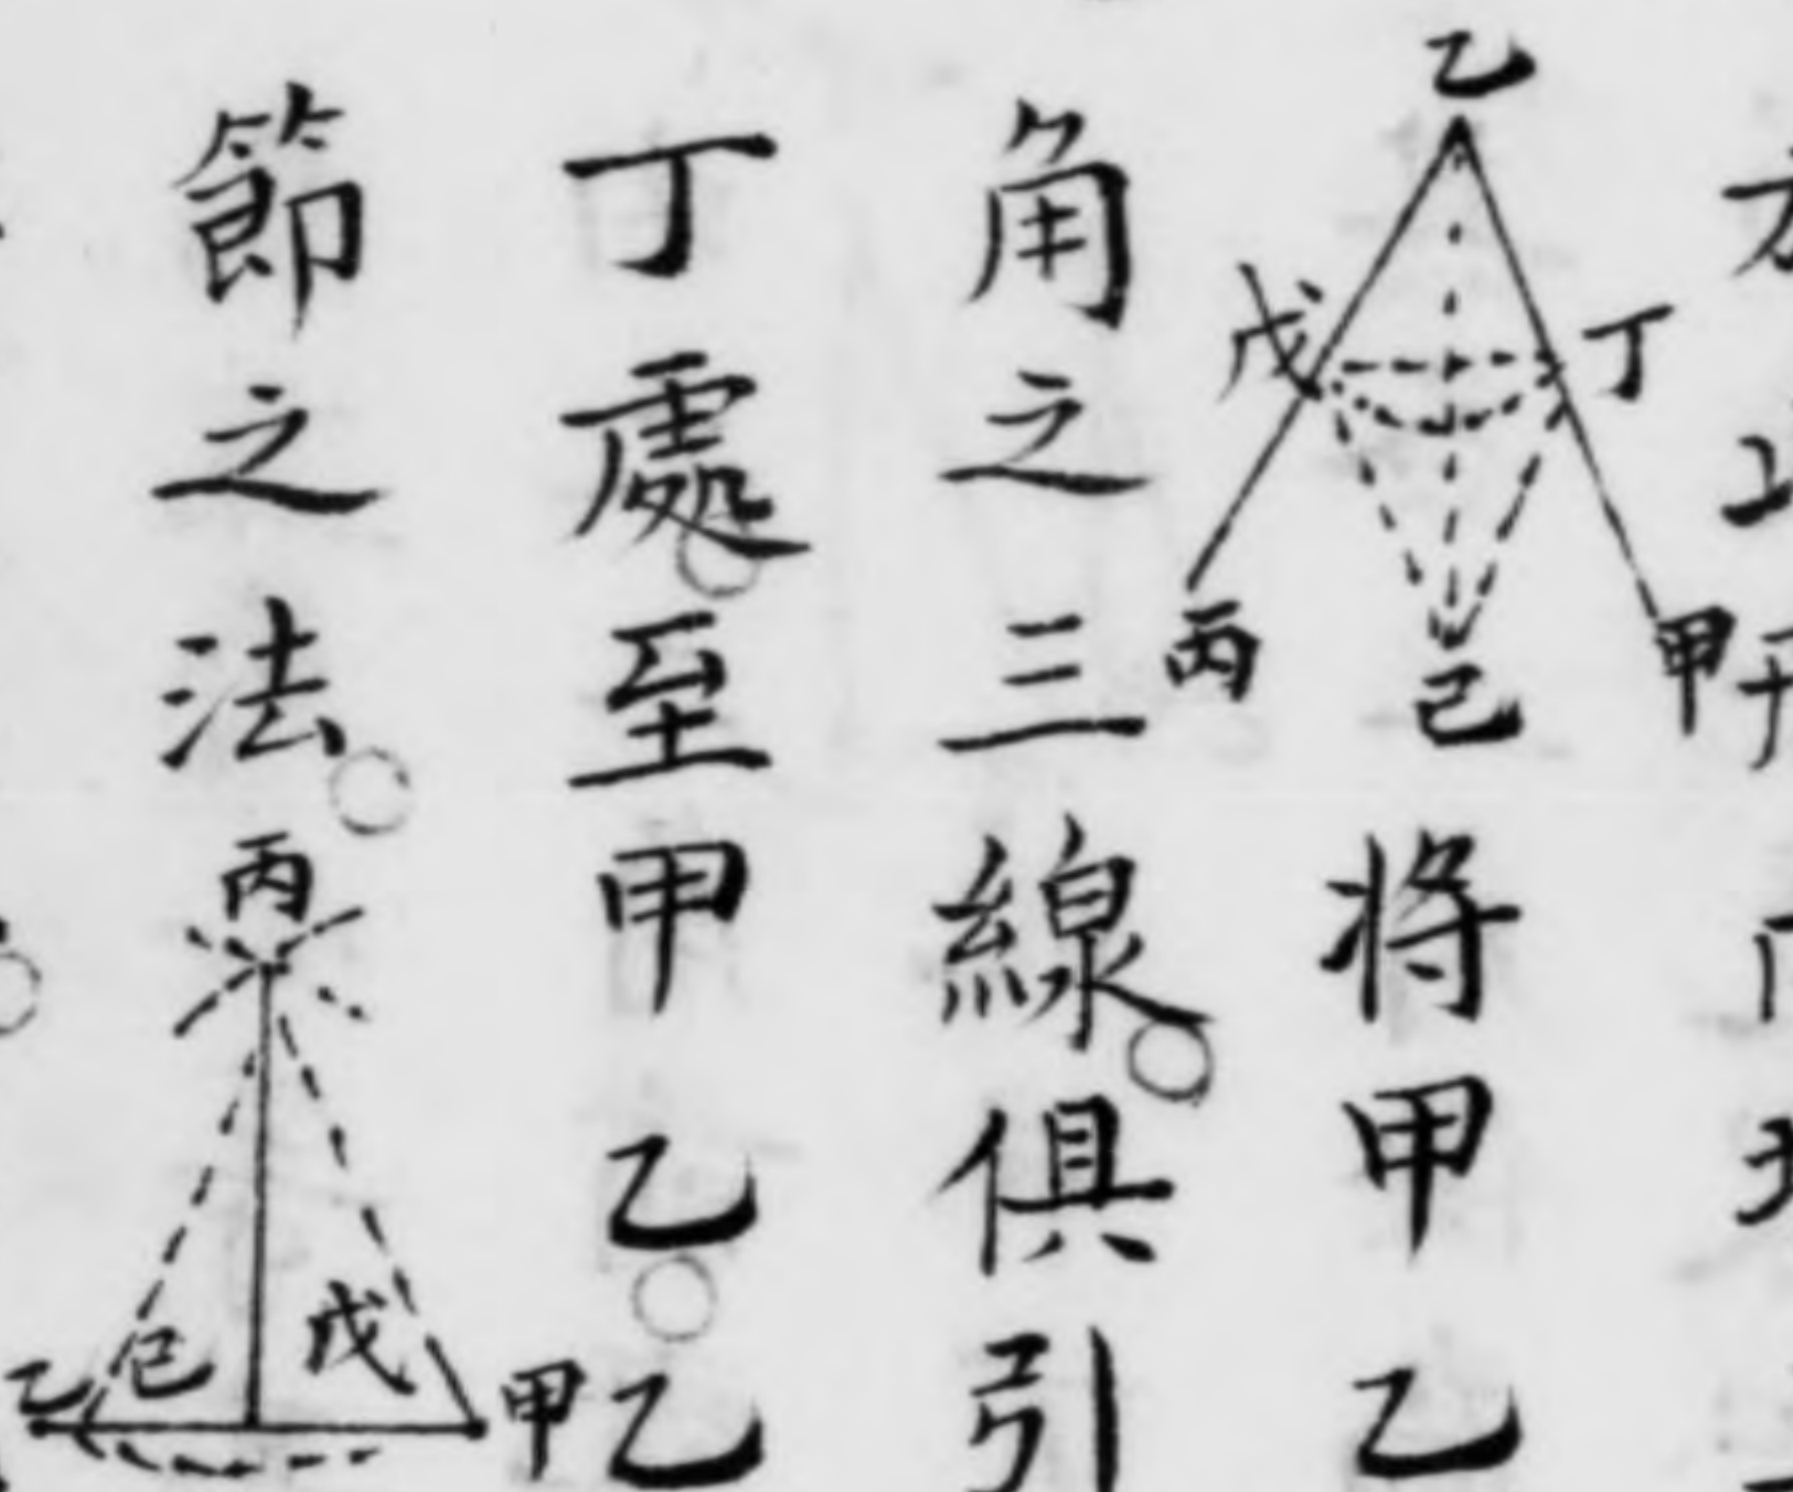 乙
戊
丁
丙
己
甲
将甲乙
角之三線俱引
丁處至甲乙乙
節之法
丙
戊
己
乙
甲